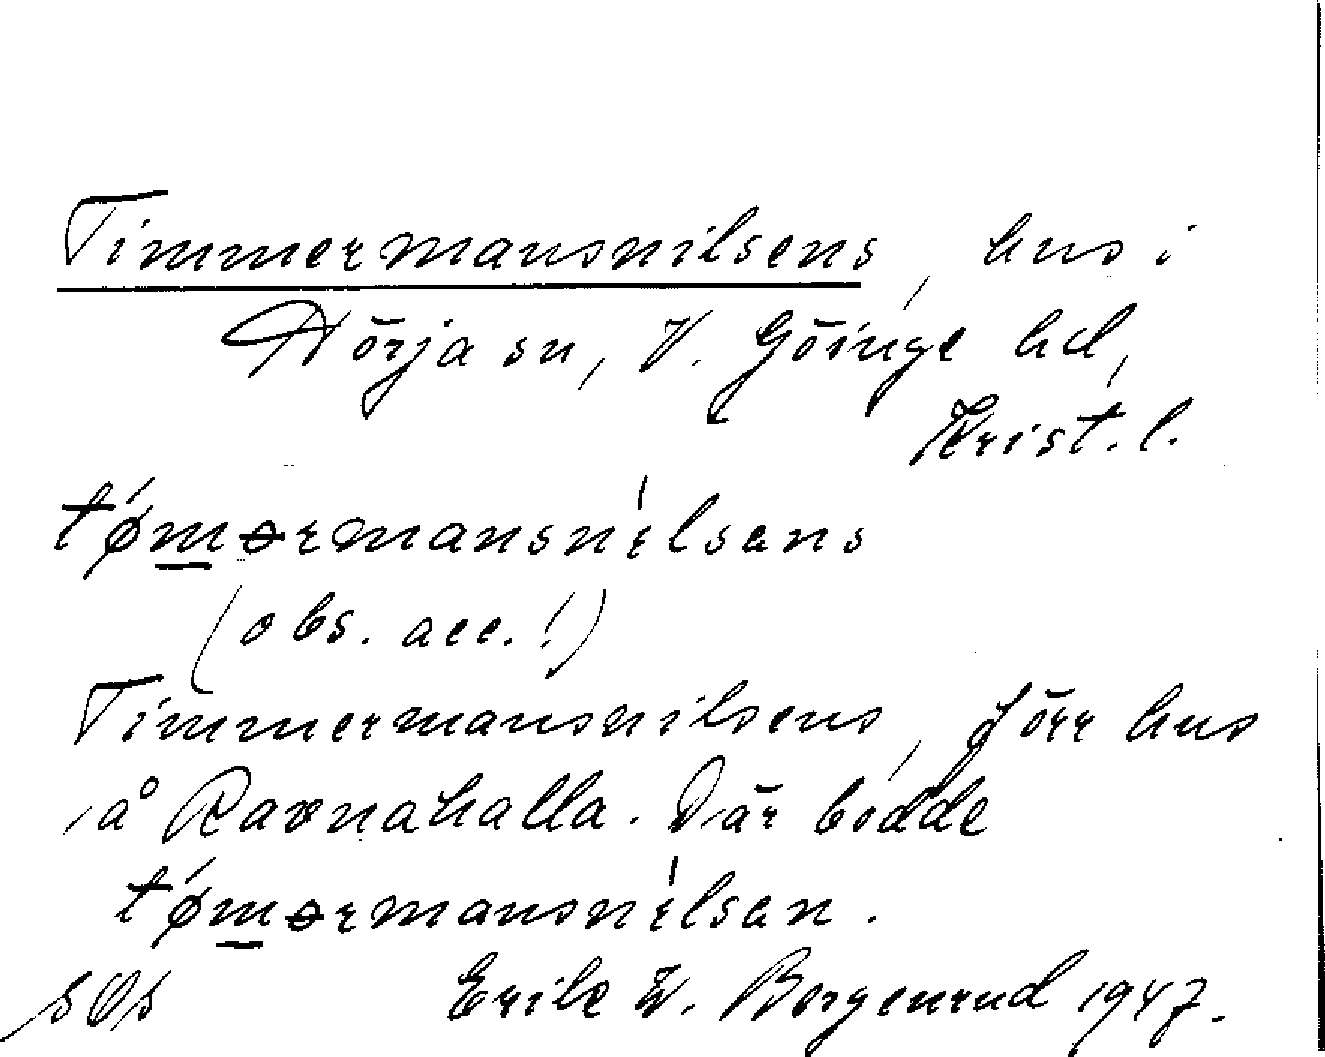 Timmermansnilsens, hus i
Nörja sn, V. Göinge hd,
Krist. l.
tǿmɵrmansnílsans
(obs. acc.!)
Timmermansnilsens, förr hus
å Ravnahalla. Där bodde
tǿmɵrmansnílsan.
Erik W. Borgenrud 1947.